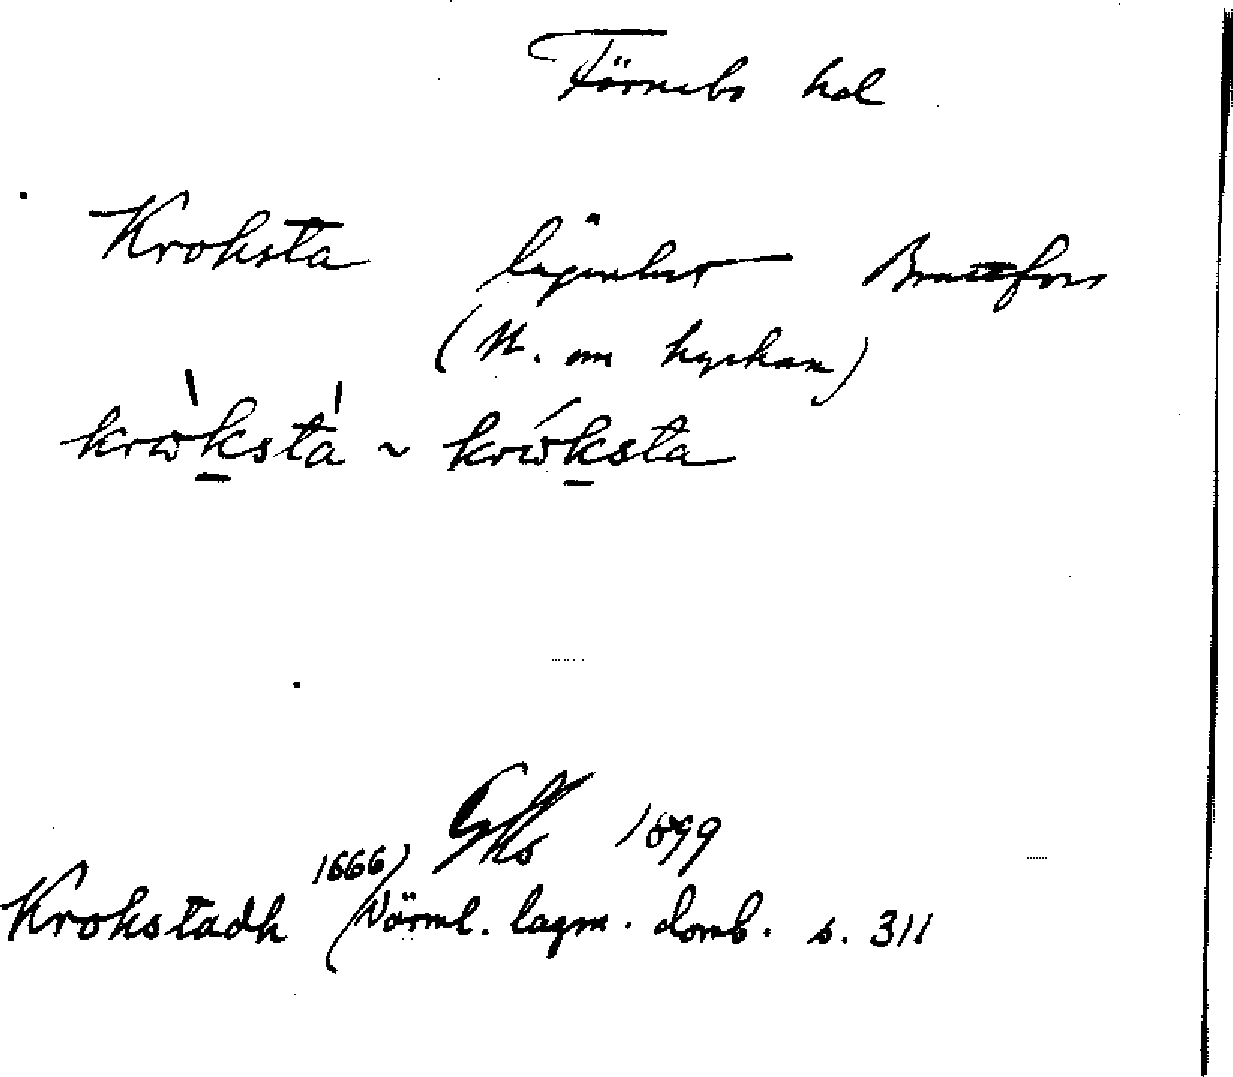 Färnebo hd
Kroksta lägenhet Brattfors
(N. om kyrkan)
krὼksta̍ ~ krώksta
1899
Krokstadh 1666 (Värml. lagm. domb. s. 311